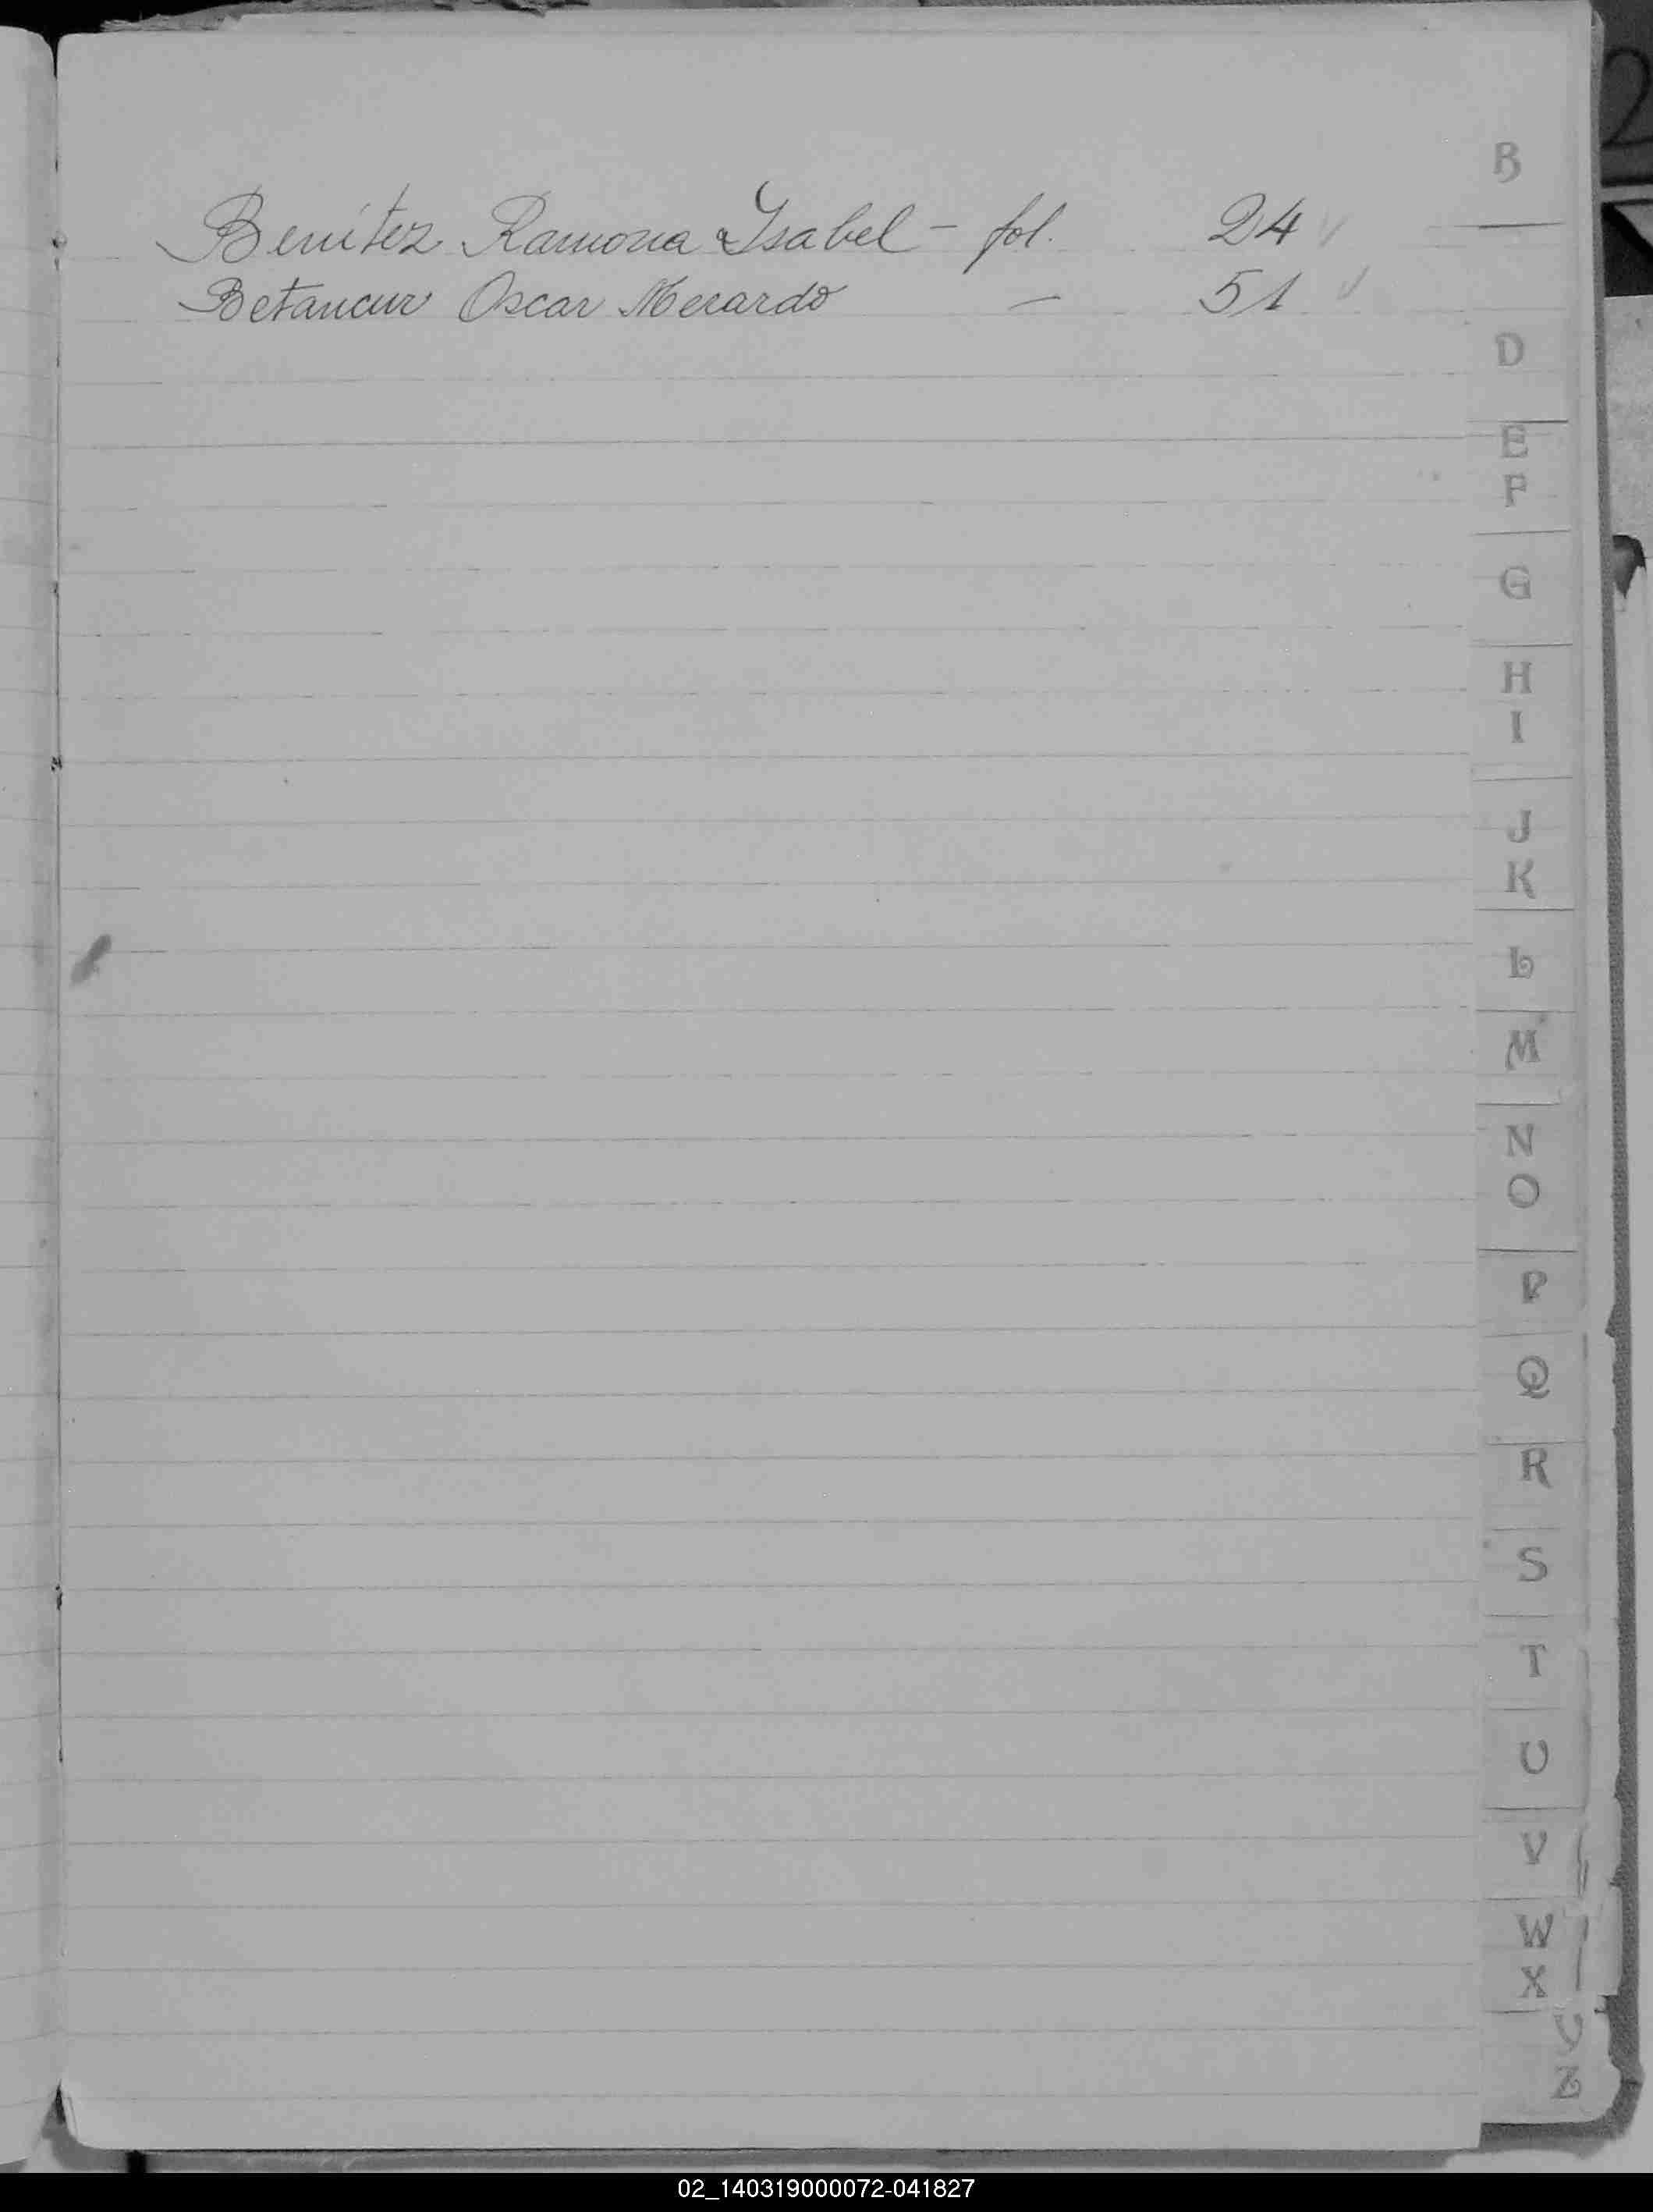 B
Benítez Ramona Ysabel - fol. 24
Betancur Oscar Merardo — 51
D
E
F
G
H
I
J
K
L
M
N
O
P
Q
R
S
T
U
V
W
X
Y
Z
02_140319000072-041827